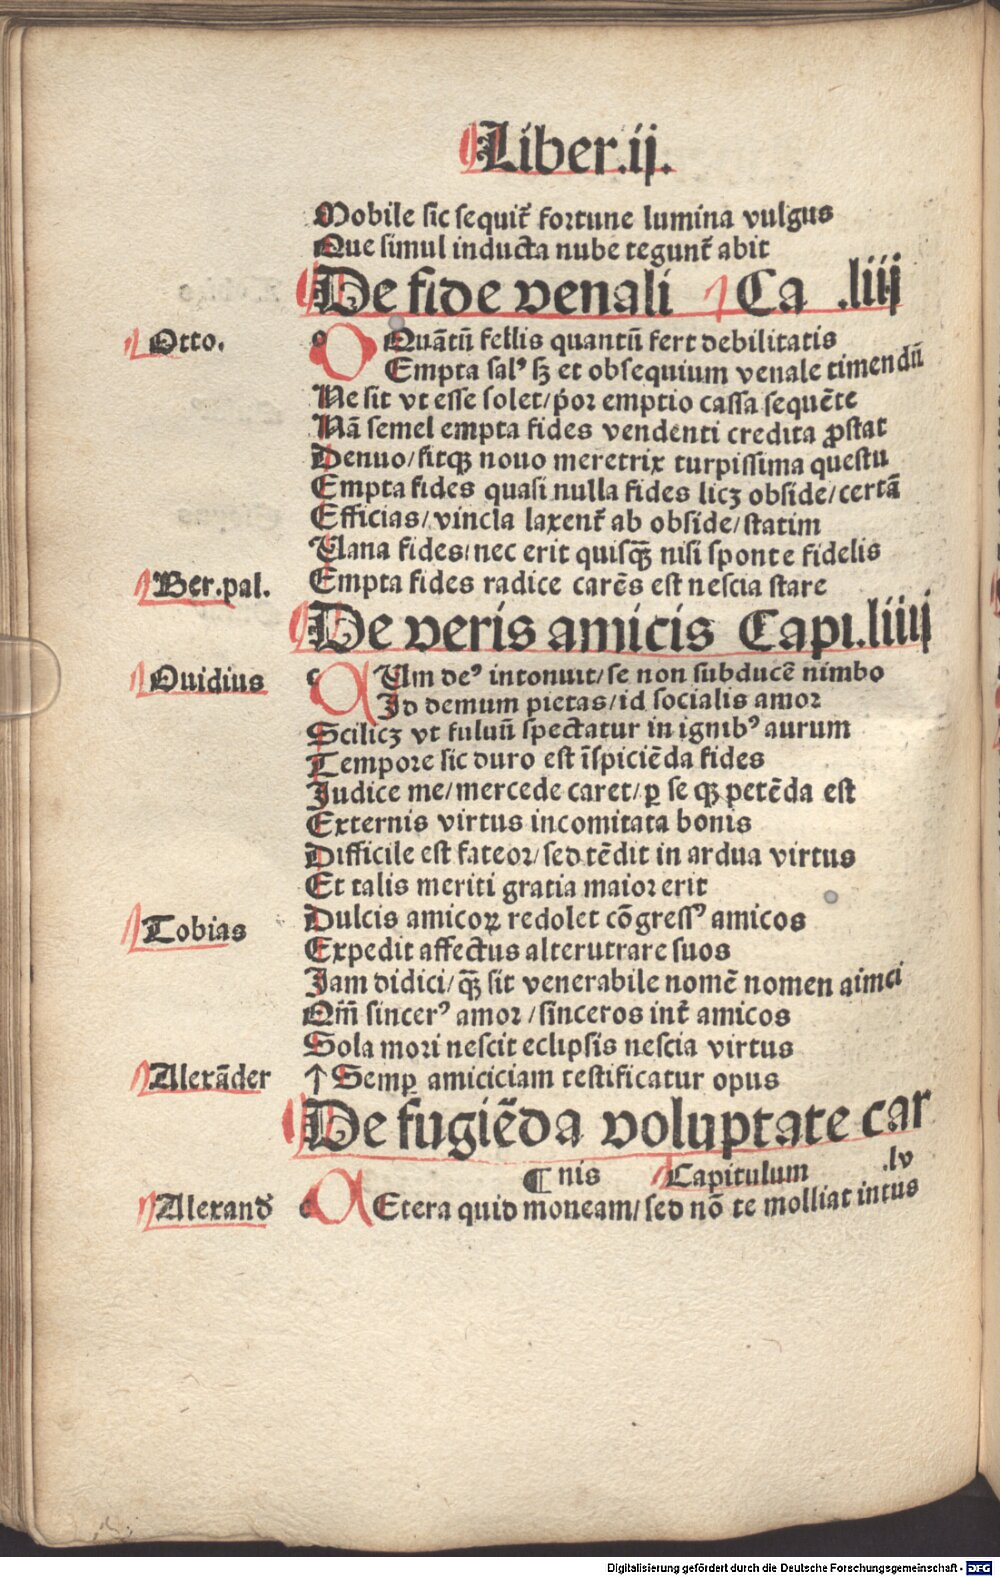 Liber.ij.
Mobile sic sequit᷑ fortune lumina vulgus
Que simul inducta nube tegunt᷑ abit
De fide venali Ca .liij
Otto.
o Quãtũ fellis quantũ fert debilitatis
Empta salꝰ sꝫ et obsequium venale timendũ
Ne sit vt esse solet/p̄or emptio cassa sequẽte
Nã semel empta fides vendenti credita ꝓstat
Denuo/sitqꝫ nouo meretrix turpissima questu
Empta fides quasi nulla fides licꝫ obside/certã
Efficias/vincla laxent᷑ ab obside/statim
Uana fides/nec erit quisqꝫ̃ nisi sponte fidelis
Ber.pal.
Empta fides radice carẽs est nescia stare
De veris amicis Capı.liiij
Ouidius
c Um deꝰ intonuit/se non subducẽ nimbo
Id demum pietas/id socialis amor
Scilicꝫ vt fuluũ spectatur in ignibꝰ aurum
Tempore sic duro est ĩspiciẽda fides
Judice me/mercede caret/ꝑ se qꝫ petẽda est
Externis virtus incomitata bonis
Difficile est fateor/sed tẽdit in ardua virtus
Et talis meriti gratia maior erit
Tobias
Dulcis amicoꝝ redolet cõgressꝰ amicos
Expedit affectus alterutrare suos
Jam didici/qꝫ̃ sit venerabile nomẽ nomen aimci
Qm̃ sincerꝰ amor/sinceros int᷑ amicos
Sola mori nescit eclipsis nescia virtus
Alexãder
↑ Semꝑ amiciciam testificatur opus
De fugiẽda voluptate car
¶ nis Capitulum .lv
Alexand᷑
c Etera quid moneam/sed nõ te molliat intus
Digitalisierung gefördert durch die Deutsche Forschungsgemeinschaft - DFG